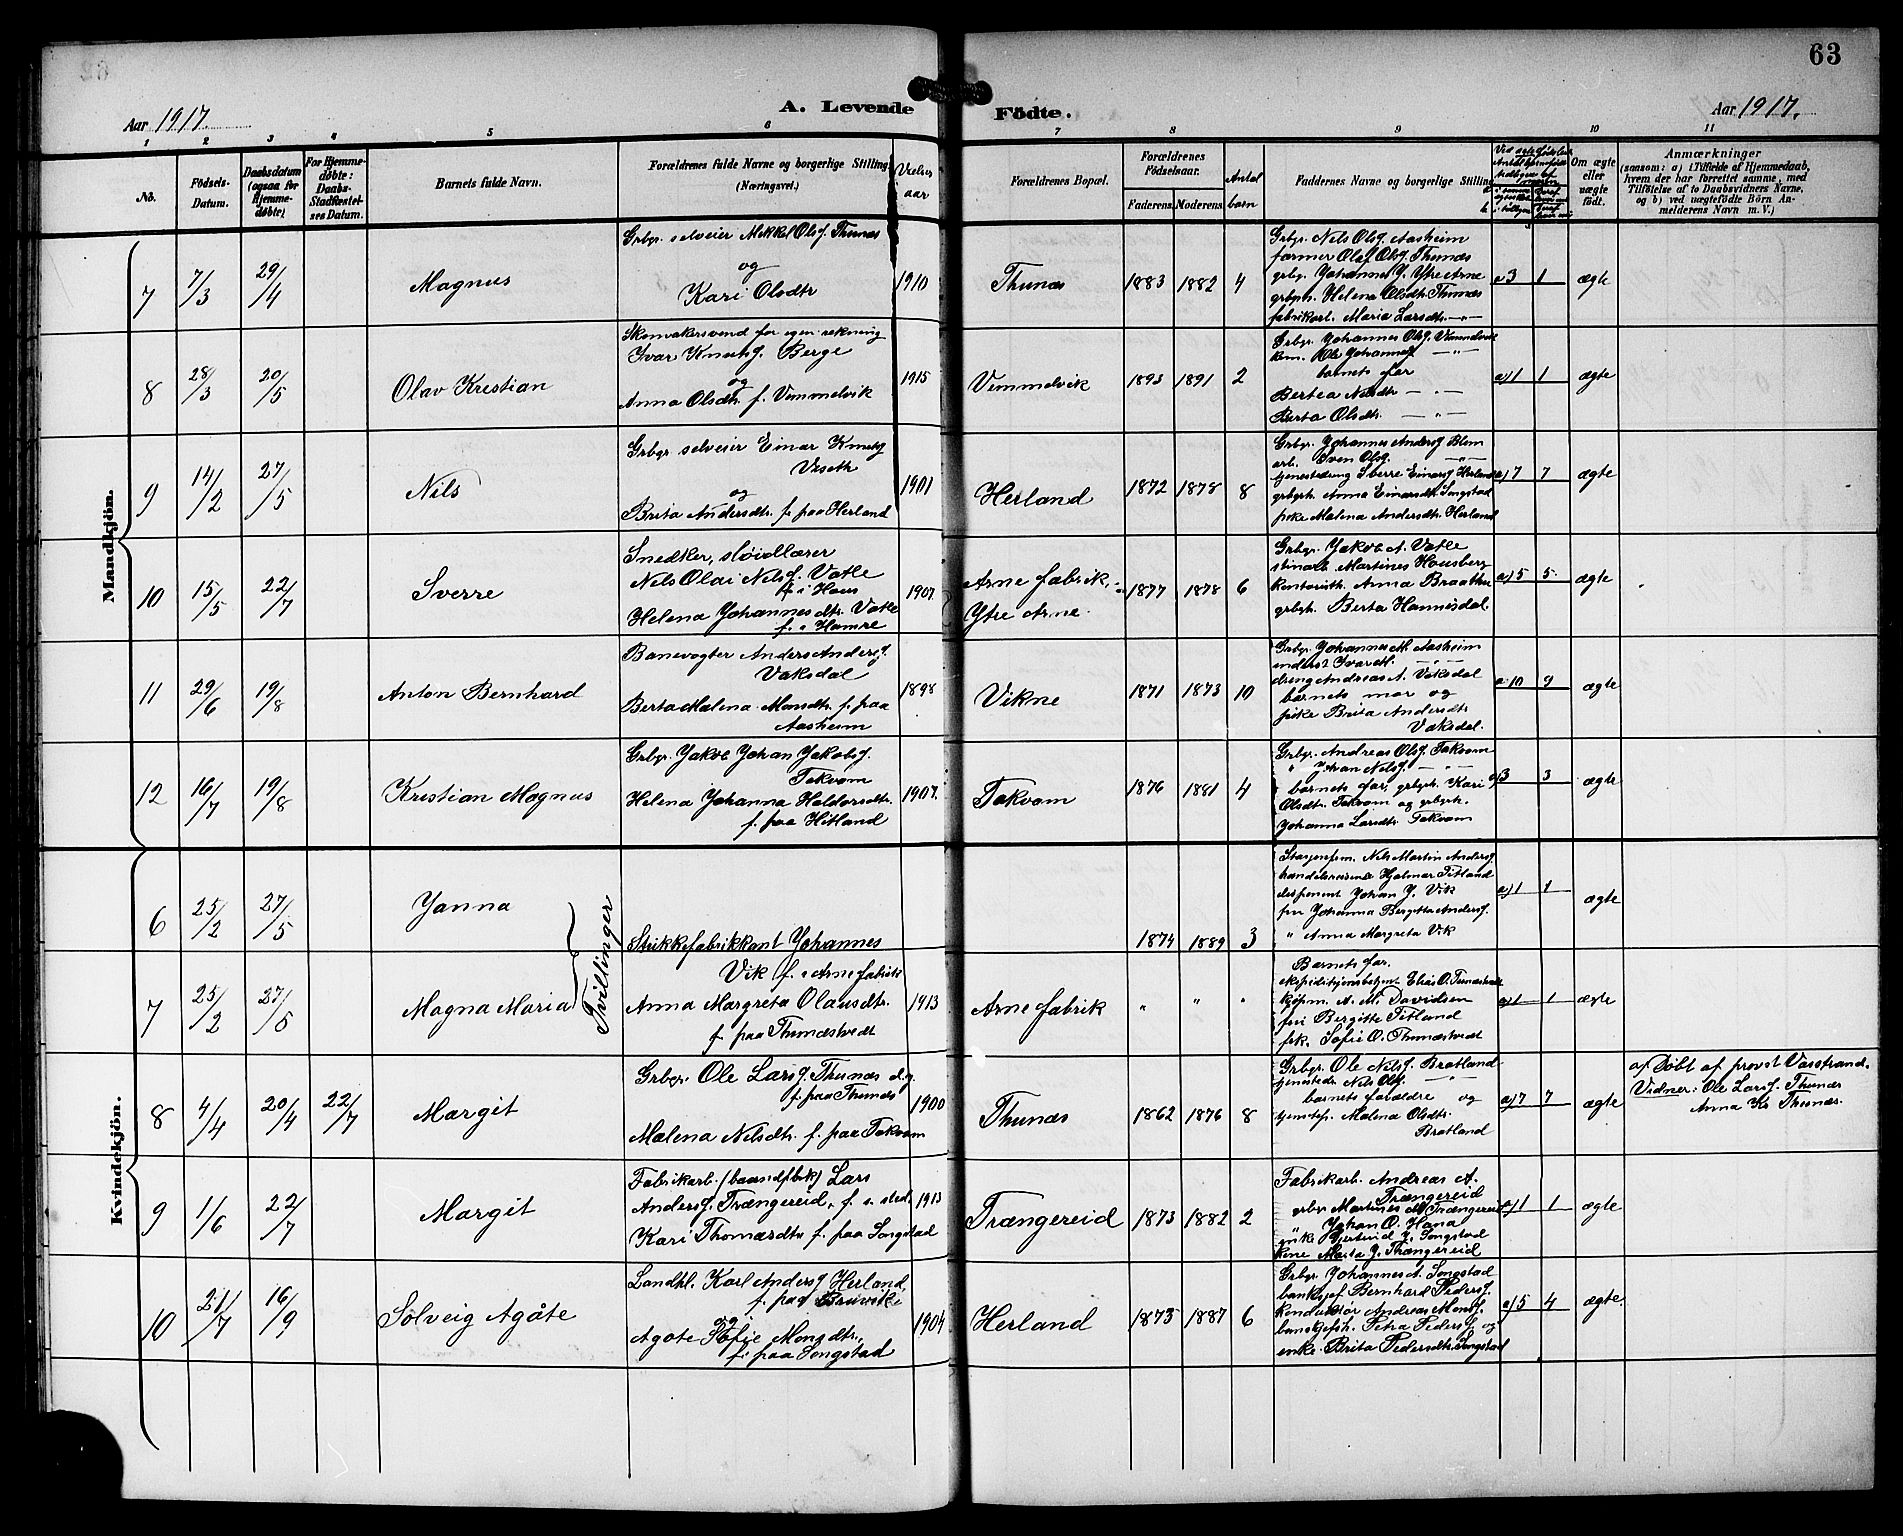 63
Aar 1917.
A. Levende
Fødte.
Aar 1917.
1 2 3 4 5 6 7 8 9 10 11
No.
Fødsels-
Datum.
Daabsdatum
(ogsaa for
Hjemme-
døbte)
For Hjemme-
døbte:
Daabs-
Stadfæstel-
ses Datum.
Barnets fulde Navn.
Forældrenes fulde Navne og borgerlige Stilling
(Næringsvei.)
Vielses
aar
Forældrenes Bopæl.
Forældrenes
Fødselsaar.
Faderens. Moderens.
Antal
barn
Faddernes Navne og borgerlige Stilling
Om ægte
eller
uægte
født.
Anmærkninger
(saasom: a) i Tilfælde af Hjemmedaab,
hvem der har forrettet samme, med
Tilføielse af to Daabsvidners Navne,
og b) ved uægtefødte Børn An-
melderens Navn m. V.)
Mandkjön.
7 7/3 29/4 Magnus
Grbgr. selveier Mikkel Olsf. Thunæs
og
Kari Olsdtr
1910 Thunæs 1883 1882 4
Grbgr. Nils Olsf. Aasheim
farmer Olaf Olsf. Thunæs
grbgr. Johannes J. Ytre Arne
grbgrk. Helena Olsdtr. Thunæs
fabrikarb. Maria Larsdtr. — " —
a 3 1 ægte
8 28/3 20/5 Olav Kristian
Skomakersvend for egen rekning
Ivar Knutsf. Berge
og
Anna Olsdtr. f. Vemmelvik
1915 Vemmelvik 1893 1891 2
Grbgr. Johannes Olsf. Vemmelvik
Ole Johannesf. — " —
barnets far
Bertea Nilsdtr. — " —
Berta Olsdtr. — " —
a) 1 1 ægte
9 14/2 27/5 Nils
Grbgr. selveier Einar Knutsf.
Veseth
og
Brita Andersdtr. f. paa Herland
1901 Herland 1872 1878 8
Grbgr. Johannes Andersf. Blom
arb. Sven Olsf. — " —
tjenestedreng Sverre Einarsf. Herland
grbgrk. Anna Einarsdtr. Songstad
pike Malena Andersdtr. Herland
a) 7 7 ægte
10 15/5 22/7 Sverre
Snedker, sløidlærer
Nils Olai Nilsf. Vatle
f. i Haus
Helena Johannesdtr. Vatle
f. " Hamre
1907. Arne fabrik,
Ytre Arne. 1877 1878 6
Grbgr. Jakob A. Vatle
Martines Housberg
kontorist. Anna Braathu
grbgrk. Berta Hannisdal.
a) 5 5 ægte
11 29/6 19/8 Anton Bernhard
Banevogter Anders Andersf.
Vaksdal
Berta Malena Monsdtr. f. paa
Aasheim
1898 Vikne 1871 1873 10
Grbgr. Johannes M. Aasheim
Ivar M. — " —
dreng Andreas A. Vaksdal
barnets mor og
pike Brita Andersdtr
Vaksdal.
a 10 9 ægte
12 16/7 19/8 Kristian Magnus
Grbgr. Jakob Johan Jakobsf.
Takvam
Helena Johanna Haldorsdtr.
f. paa Hitland
1907. Takvam 1876 1881 4
Grbgr. Andreas Olsf. Takvam
" Johan Nilsf. — " —
barnets far, grbgrk. Kari
Olsdtr. Takvam og grbgrk.
Johanna Larsdtr. Takvam
a) 3 3 ægte
Kvindekjön.
6 25/2 27/5 Janna
Tvillinger
1874 1889 3
Nils Martin Andersf.
handelsreisende Hjalmar Titland
disponent Johan J. Vik
fru Johanna Bergitta Andersf.
" Anna Margreta Vik
a) 1 1 ægte
7 25/2 27/5 Magna Maria
Strikkefabrikkant Johannes
Vik f. i Arne fabrik
Anna Margreta Olausdtr.
f. paa Thunæstvedt
1913 Arne fabrik " " "
Barnets far.
ekspeditjonsbetjent Elias O. Tunestvedt
kjøpm. A. M. Davidsen
fru Bergitte Titland
frk. Sofie O. Thunæstvedt
a) 1 1 ægte
8 4/4 20/4 22/7 Margit
Grbgr. Ole Larsf. Thunæs d.y.
f. paa Thunæs
Malena Nilsdtr. f. paa Takvam
1900 Thunæs 1862 1876 8
Grbgr. Ole Nilsf. Bratland
tjenestedr. Nils Olsf. — " —
barnets forældre og
tjenstep. Malena Olsdtr.
Bratland
a) 7 7 ægte
a) Døbt af provst Vasstrand.
Vidner: Ole Larsf. Thunæs
Anna Ks Thunæs.
9 1/6 22/7 Margit
Fabrikarb. (baandfbrk) Lars
Andersf. Trængereid, f. s. sted
Kari Thomasdtr f. paa Songstad
1913 Trængereid 1873 1882 2
Fabrikarb. Andreas A.
Trængereid
grbgr Martines Trængereid
" Johan O. Hana
pike Gjertrud J. Songstad
kone Marta J. Trængereid
a) 1 1 ægte
10 21/7 16/9 Solveig Agåte
Landhl. Karl Andersf. Herland,
f. paa Bruvik
og
Agate Sofie Monsdtr.,
f. paa Songstad
1904 Herland 1873 1887 6
Grbgr. Johannes A. Songstad
banksjef Bernhard Pedersf.
konduktør Andreas Monsf.
banksjefsh. Petra Pedersf. og
enke. Brita Pedersdtr. Songstad
a) 5 4 ægte.